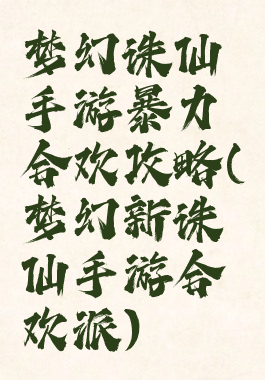 梦幻诛仙
手游暴力
合欢攻略(
梦幻新诛
仙手游合
欢派)